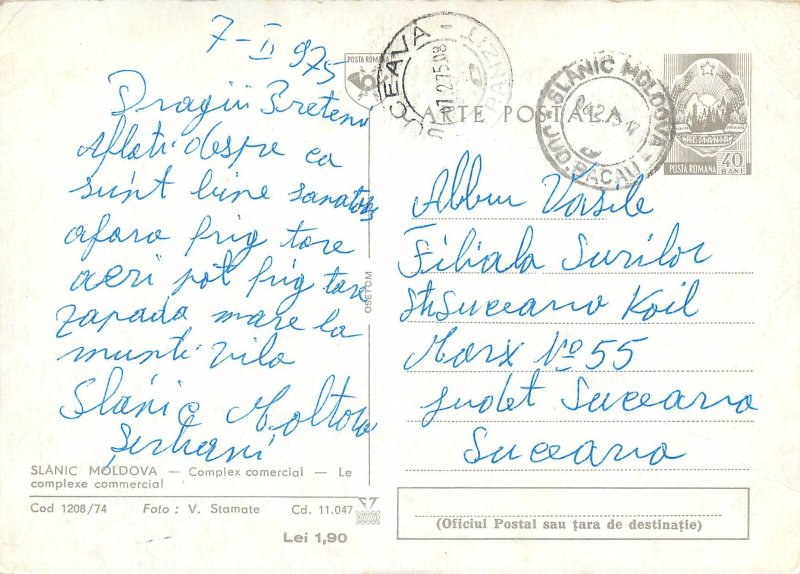 7-II 975
Dragii Preteni
Aflati despre ca
sunt bine sanatos
afara frig tare
aeri pot frig tare
zapada mare la
munti vila
Slănic Moltova
SLĂNIC MOLDOVA — Complex comercial — Le
complexe commercial
Cod 1208/74 Foto : V. Stamate Cd. 11.047
Lei 1,90
OSETCM
POSTA ROMÂNĂ
SUCEAVA
CARTE POSTALĂ
SLANIC MOLDOVA
JUD. BACAU
ROMÂNIA
POSTA ROMANA 40 BANI
Vasile
Filiala Surilor
Str Suceava
Marx No 55
Judet Suceava
Suceava
(Oficiul Postal sau țara de destinație)